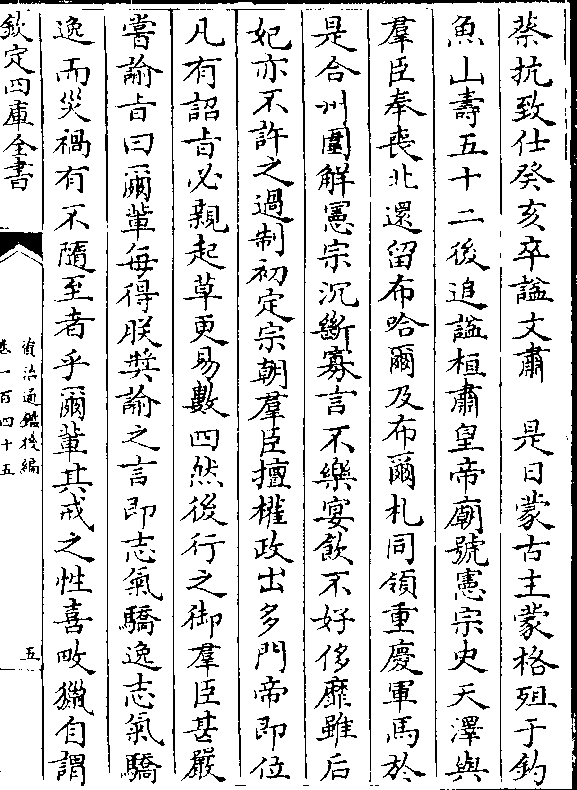 蔡抗致仕癸亥卒謚文肅　是日蒙古主蒙格殂于釣
魚山壽五十二後追謚桓肅皇帝廟號憲宗史天澤與
羣臣奉喪北還留布哈爾及布爾札同領重慶軍馬於
是合州圍解憲宗沉斷寡言不樂宴飲不好侈靡雖后
妃亦不許之過制初定宗朝羣臣擅權政出多門帝即位
凡有詔旨必親起草更易數四然後行之御羣臣甚嚴
嘗諭旨曰爾輩每得朕奬諭之言即志氣驕逸志氣驕
逸而災禍有不隨至者乎爾輩其戒之性喜畋獵自謂
欽定四庫全書
資治通鑑後編
卷一百四十五
五